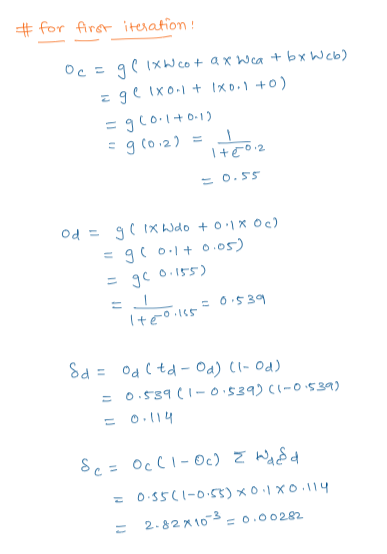 # for first iteration:
Oc = g( 1xWco + axWca + bxWcb)
= g( 1x0.1 + 1x0.1 +0)
= g(0.1+0.1)
= g(0.2) = 1/1+e^-0.2
= 0.55
Od = g( 1xWdo + 0.1 x Oc)
= g( 0.1+ 0.05)
= g( 0.155)
= 1/1+e^-0.155 = 0.539
δd = Od (td - Od) (1- Od)
= 0.539 (1 - 0.539) (1-0.539)
= 0.114
δc = Oc(1 - Oc) Σ Wdcδd
= 0.55(1-0.55) x 0.1 x 0.114
= 2.82 x 10^-3 = 0.00282